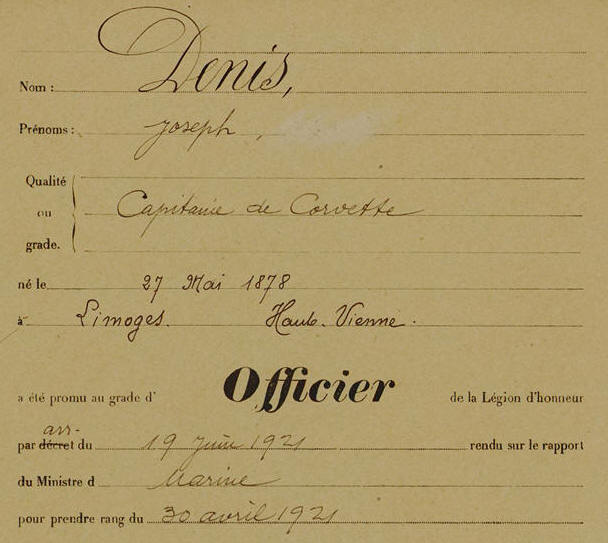 Nom : Denis,
Prénoms : Joseph,
Qualité
ou Capitaine de Corvette
grade.
né le 27 Mai 1878
à Limoges. Haute-Vienne.
a été promu au grade d' Officier de la Légion d'honneur
arr-
par décret du 19 Juin 1921 rendu sur le rapport
du Ministre d Marine
pour prendre rang du 30 avril 1921